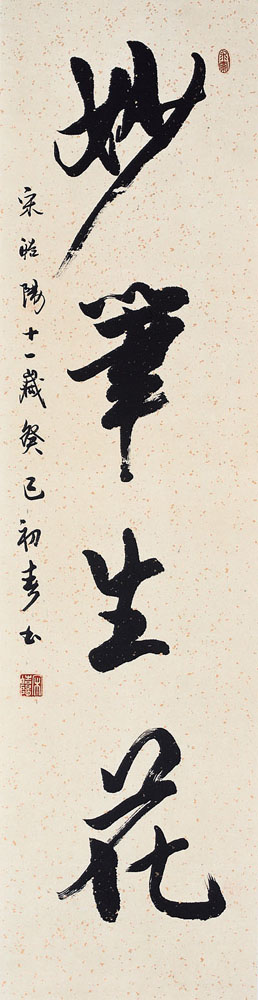 妙筆生花
宋昭陽十一歲癸巳初春書